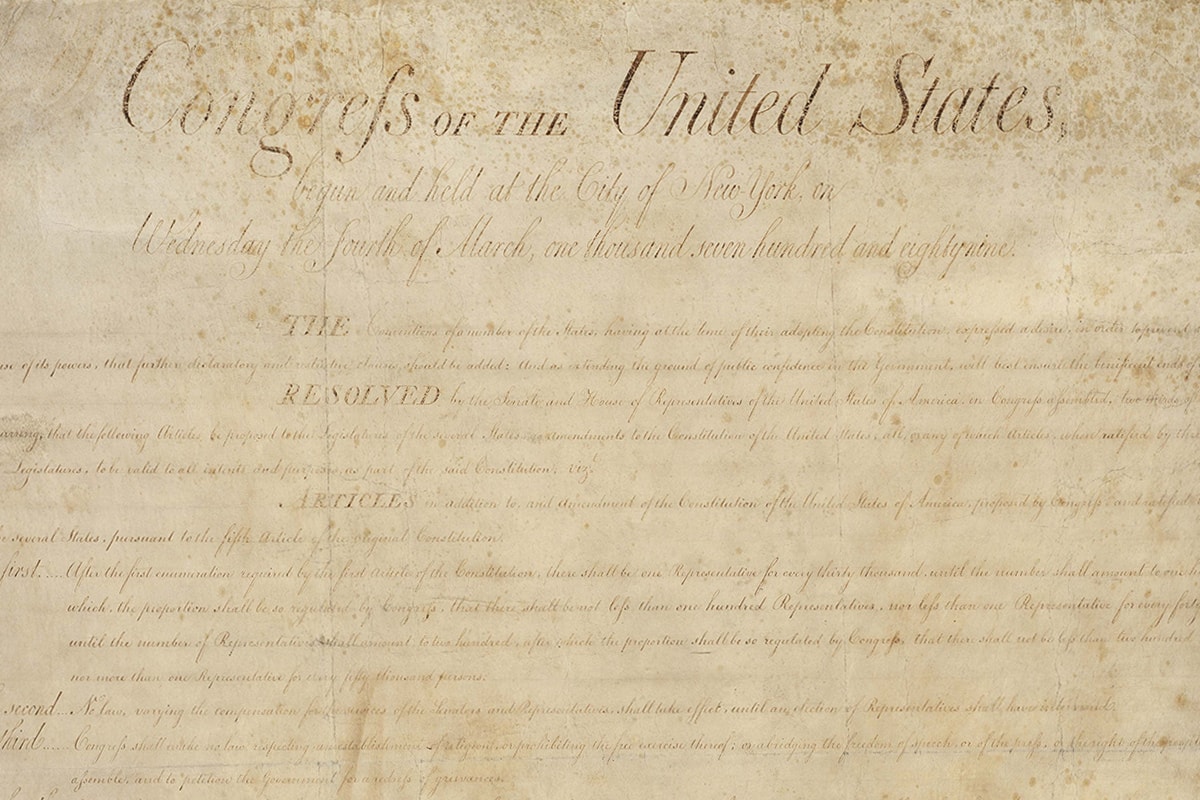 Congreſs OF THE United States,
begun and held at the City of New York, on
Wednesday the fourth of March, one thousand seven hundred and eighty nine.
THE Conventions of a number of the States, having at the time of their adopting the Constitution, expressed a desire, in order to prevent
of its powers, that further declaratory and restrictive clauses should be added: And as extending the ground of public confidence in the Government, will best insure the beneficent ends of
RESOLVED by the Senate and House of Representatives of the United States of America, in Congreſs aſsembled, two thirds of
that the following Articles be proposed to the Legislatures of the several States, as amendments to the Constitution of the United States, all, or any of which Articles, when ratified by
Legislatures, to be valid to all intents and purposes, as part of the said Constitution, viz.
ARTICLES in addition to, and Amendment of the Constitution of the United States of America, proposed by Congreſs, and ratified
several States, pursuant to the fifth Article of the original Constitution.
first.... After the first enumeration required by the first Article of the Constitution, there shall be one Representative for every thirty thousand, until the number shall amount to one
which, the proportion shall be so regulated by Congreſs, that there shall be not leſs than one hundred Representatives, nor leſs than one Representative for every
until the number of Representatives shall amount to two hundred, after which the proportion shall be so regulated by Congreſs, that there shall not be leſs than two hundred
nor more than one Representative for every fifty thousand persons.
second... No law, varying the compensation for the services of the Senators and Representatives, shall take effect, until an election of Representatives shall have intervened.
third...... Congreſs shall make no law respecting an establishment of religion, or prohibiting the free exercise thereof; or abridging the freedom of speech, or of the press, or the right of the
aſsemble, and to petition the Government for a redreſs of grievances.